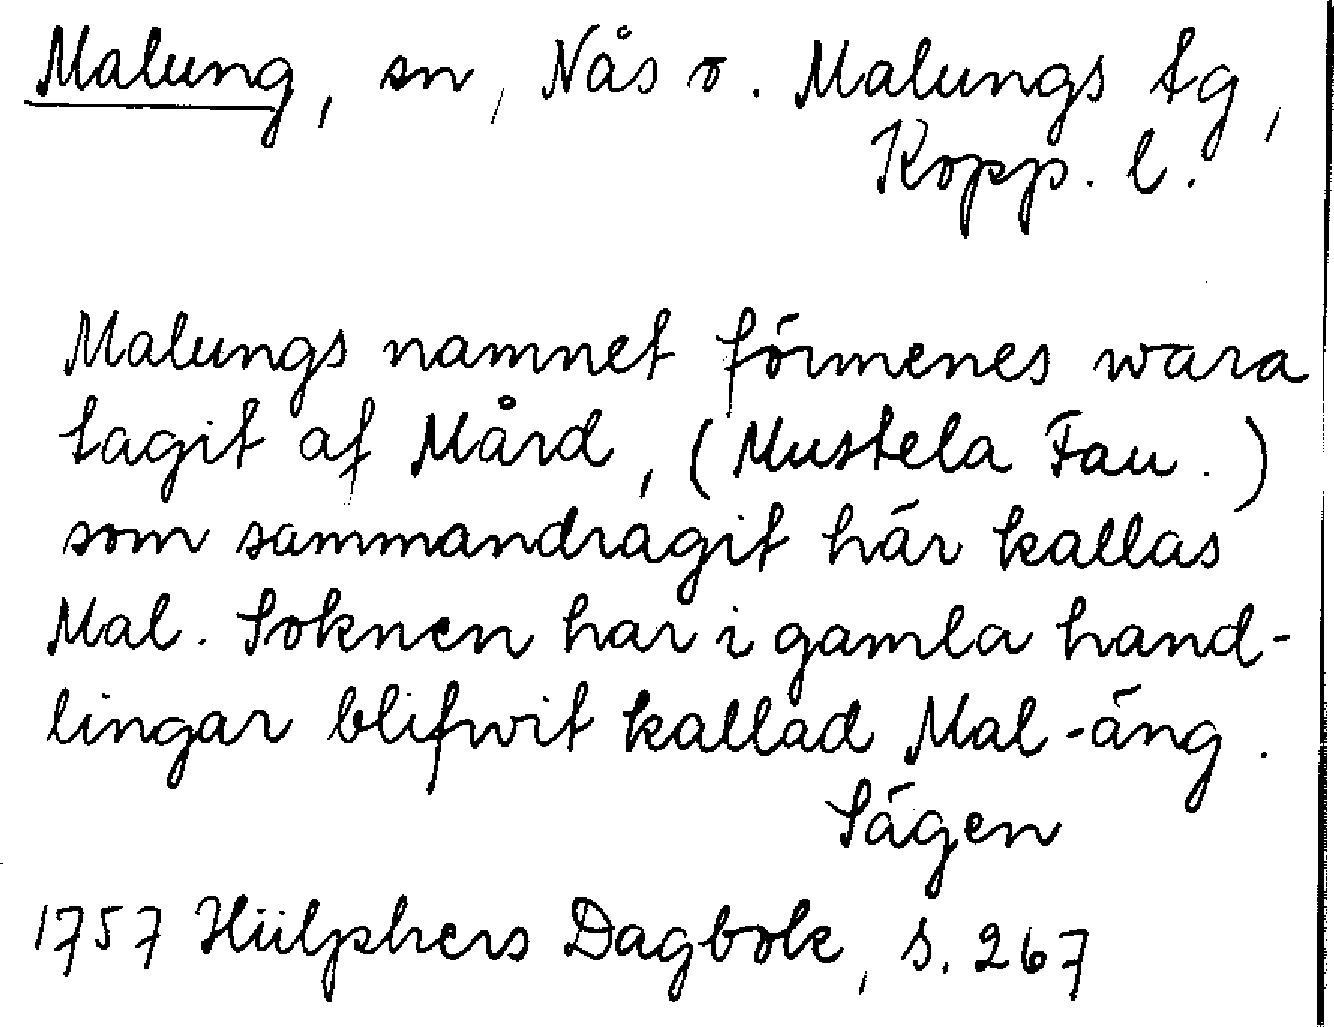 Malung, sn, Nås o. Malungs tg,
Kopp. l.
Malungs namnet förmenes wara
tagit af Mård, (Mustela Fau.)
som sammandragit här kallas
Mal. Soknen har i gamla hand-
lingar blifwit kallad Mal-äng.
Sägen
1757 Hülphers Dagbok, s. 267